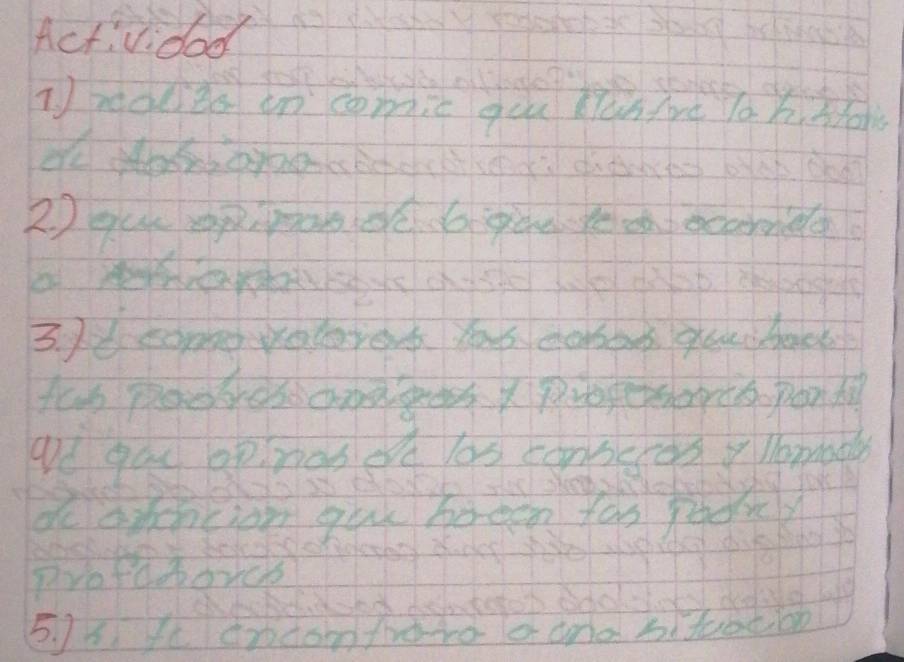 Actividad
1.) realiza un comic que ilustre la historia
de
2.) que opinas de lo que le a ocurrido
a
3.) ¿ como valoras las cosas que hace
tus padres amigos y profesores por ti
4)¿ que opinas de los consejos y llamados
de atencion que hacen tus padre y
profesores
5.) si te encontrara a una situacion